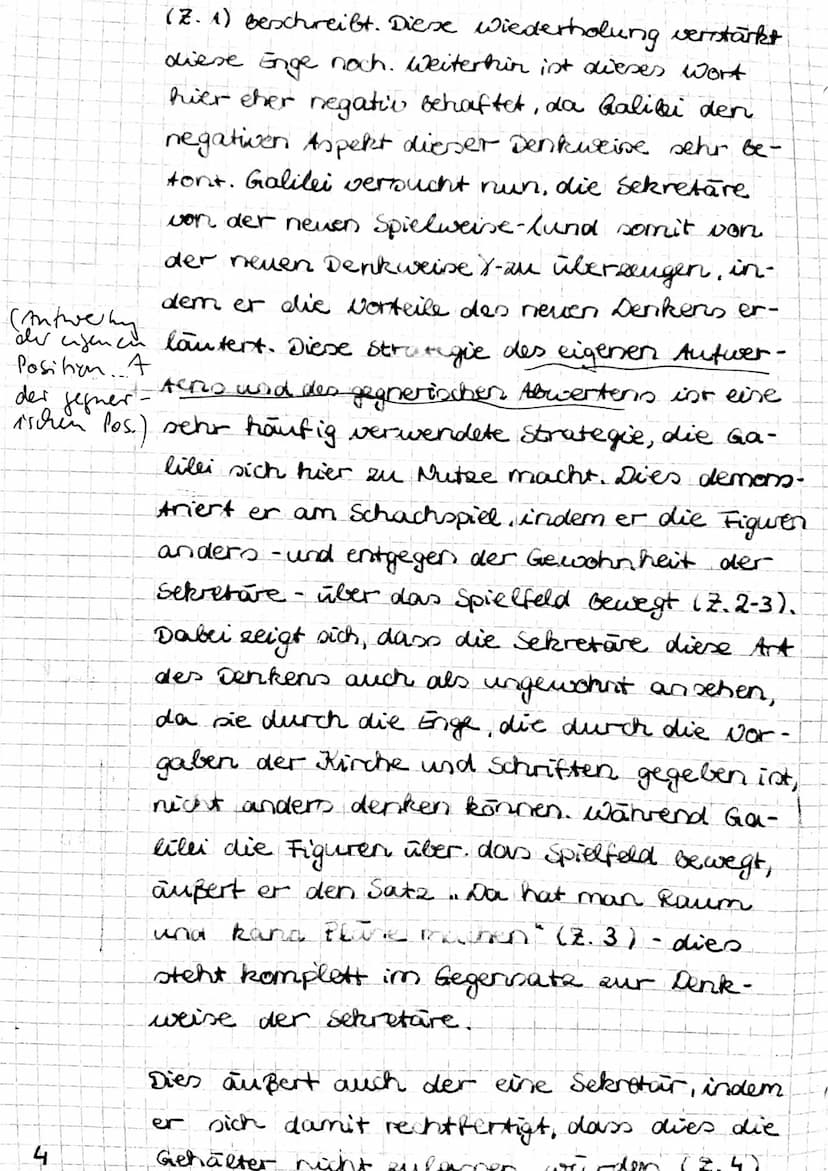 (Z. 1) beschreibt. Diese Wiederholung verstärkt
diese Enge noch. Weiterhin ist dieses Wort
hier eher negativ behaftet, da Galilei den
negativen Aspekt dieser Denkweise sehr be-
tont. Galilei versucht nun, die Sekretäre
von der neuen Spielweise - (und somit von
der neuen Denkweise) - zu überzeugen, in-
dem er die Vorteile des neuen Denkens er-
läutert. Diese Strategie des eigenen Aufwer-
tens und des gegnerischen Abwertens ist eine
sehr häufig verwendete Strategie, die Ga-
lilei sich hier zu Nutze macht. Dies demons-
triert er am Schachspiel, indem er die Figuren
anders - und entgegen der Gewohnheit der
Sekretäre - über das Spielfeld bewegt (Z. 2-3).
Dabei zeigt sich, dass die Sekretäre diese Art
des Denkens auch als ungewohnt ansehen,
da sie durch die Enge, die durch die Vor-
gaben der Kirche und Schriften gegeben ist,
nicht anders denken können. Während Ga-
lilei die Figuren über das Spielfeld bewegt,
äußert er den Satz „Da hat man Raum
und kann Pläne machen" (Z. 3) - dies
steht komplett im Gegensatz zur Denk-
weise der Sekretäre.
Dies äußert auch der eine Sekretär, indem
er sich damit rechtfertigt, dass dies die
Gehälter nicht zulassen würden (Z. 4)
(Aufwertung
der eigenen
Position
der gegner-
ischen Pos.)
4